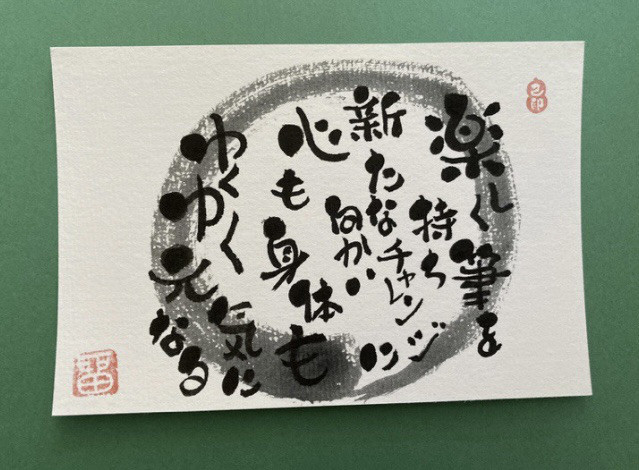 楽しく筆を
持ち
新たなチャレンジに
向かい
心も身体も
ゆくゆく
元気になる